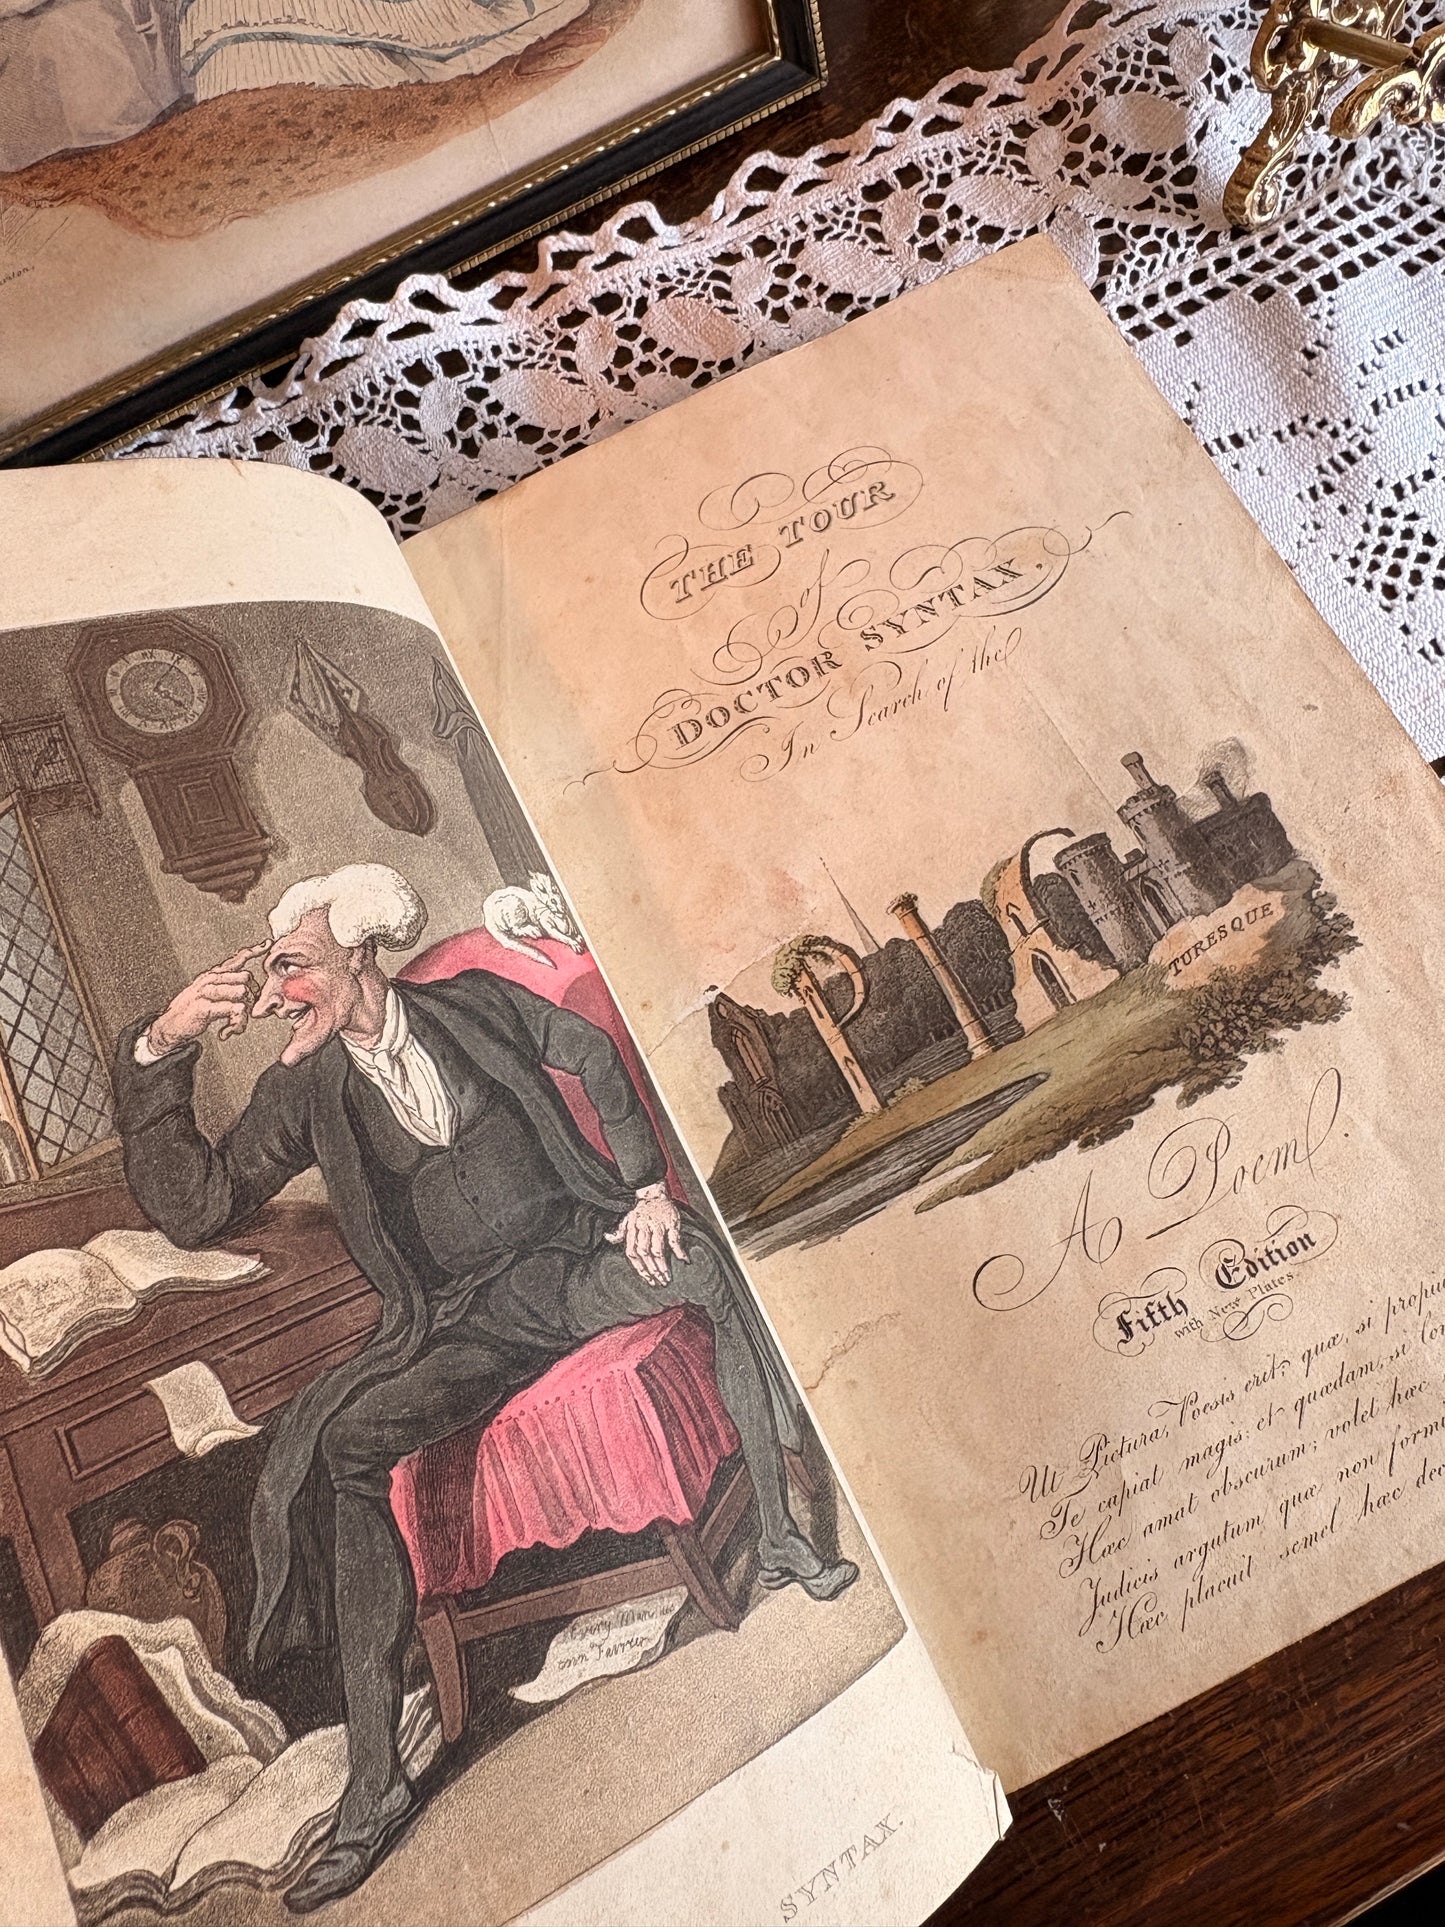 THE TOUR
of
DOCTOR SYNTAX,
In Search of the
TURESQUE
A Poem.
Fifth Edition
with New Plates.
Ut Pictura, Poesis erit; quæ, si propius
Te capiat magis; et quædam, si lon
Hæc amat obscurum; volet hæc
Judicis argutum quæ non formi
Hæc placuit semel hæc dec
Every Man
SYNTAX.